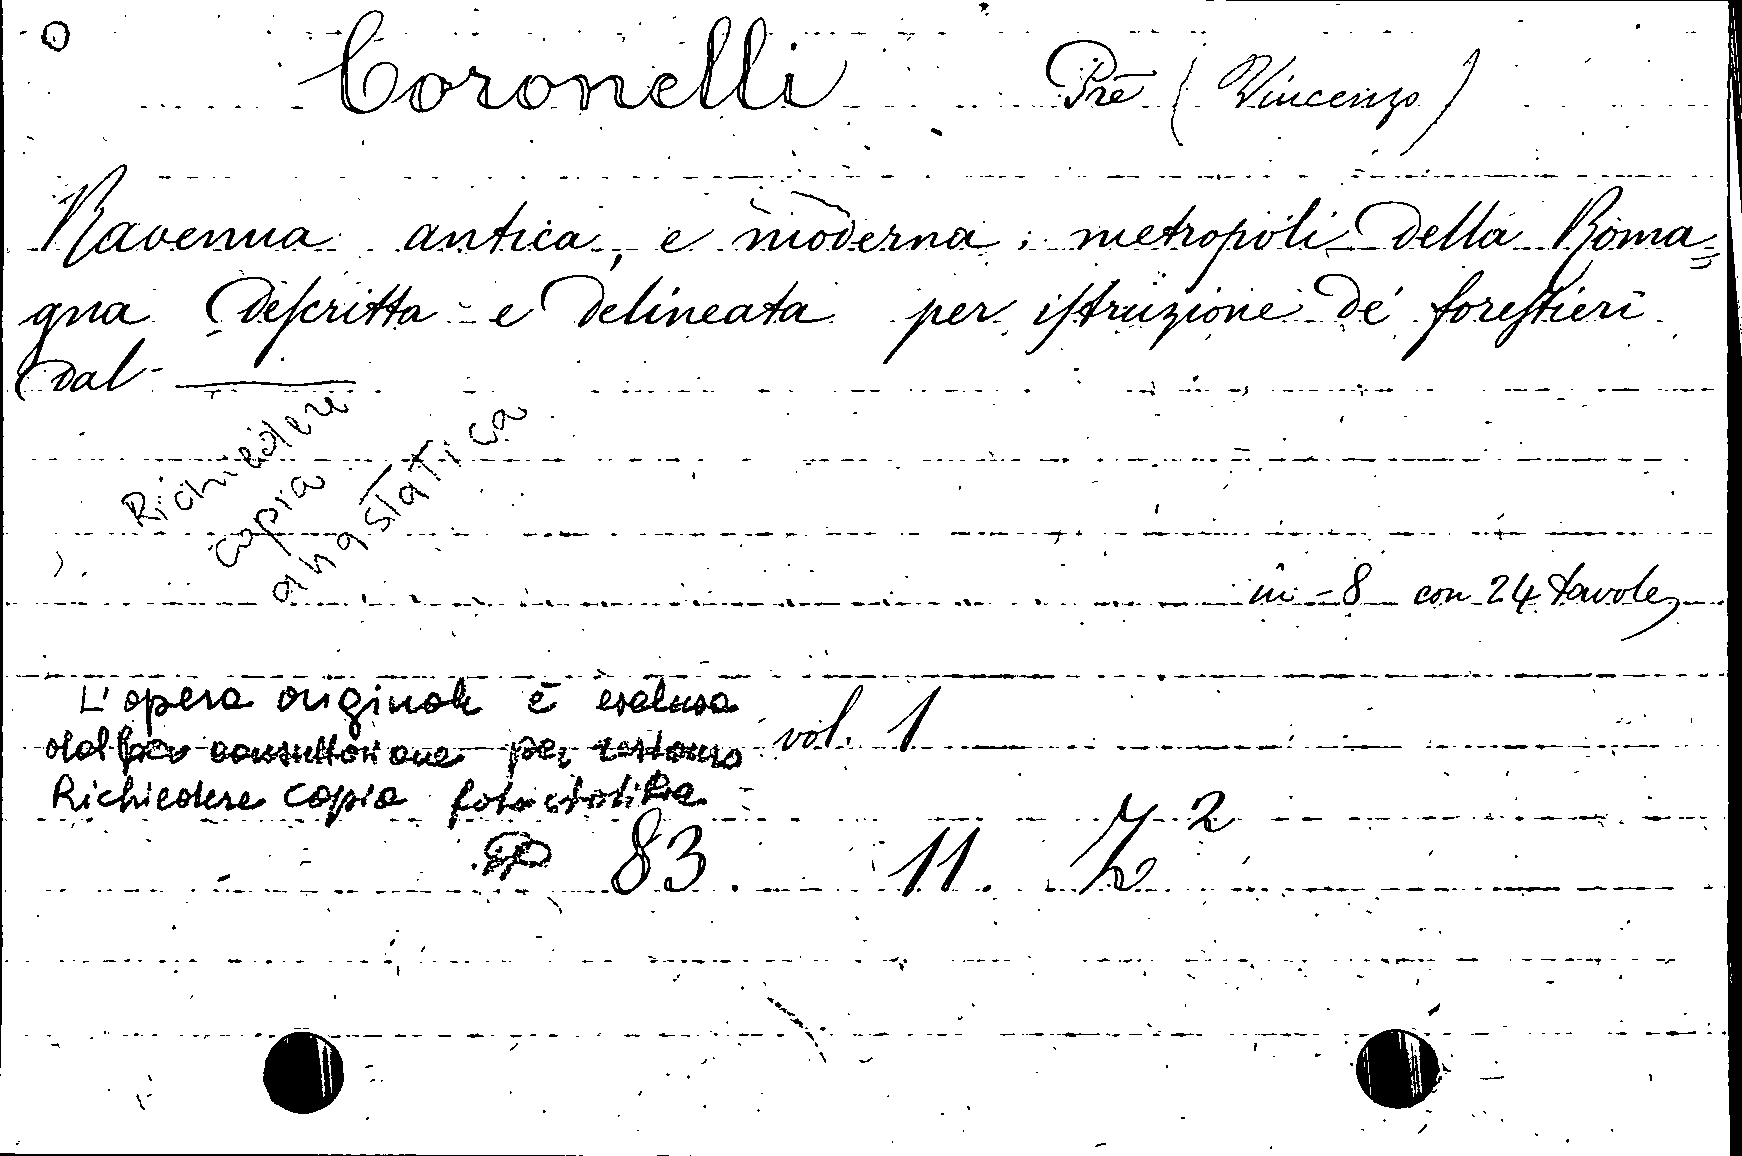 Coronelli Pre (Vincenzo)
Ravenna antica, e moderna; metropoli della Roma=
gna descritta e delineata per istruzione de' forestieri
dal ———
Richiedere
copia
anastatica
in-8 con 24 tavole
L'opera originale è esclusa
dalla consultazione per restauro
Richiedere copia fotostatica
vol. 1
83. 11. Z²